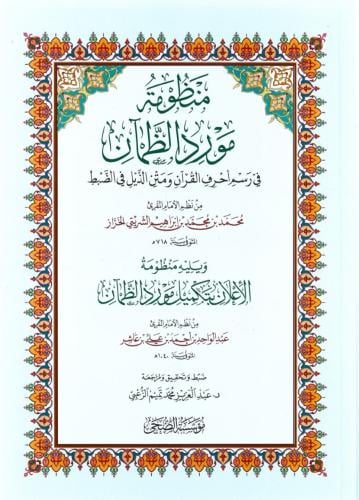 منظومة
مورد الظمآن
في رسم أحرف القرآن ومتن الذيل في الضبط
من نظم الإمام المقرئ
محمد بن محمد بن إبراهيم الشريشي الخراز
المتوفى سنة ٧١٨هـ
ويليه منظومة
الإعلان بتكميل مورد الظمآن
من نظم الإمام المقرئ
عبد الواحد بن أحمد بن علي بن عاشر
المتوفى سنة ١٠٤٠هـ
ضبط وتحقيق ومراجعة
د. عبد العزيز محمد تميم الزعبي
مؤسسة الضحى